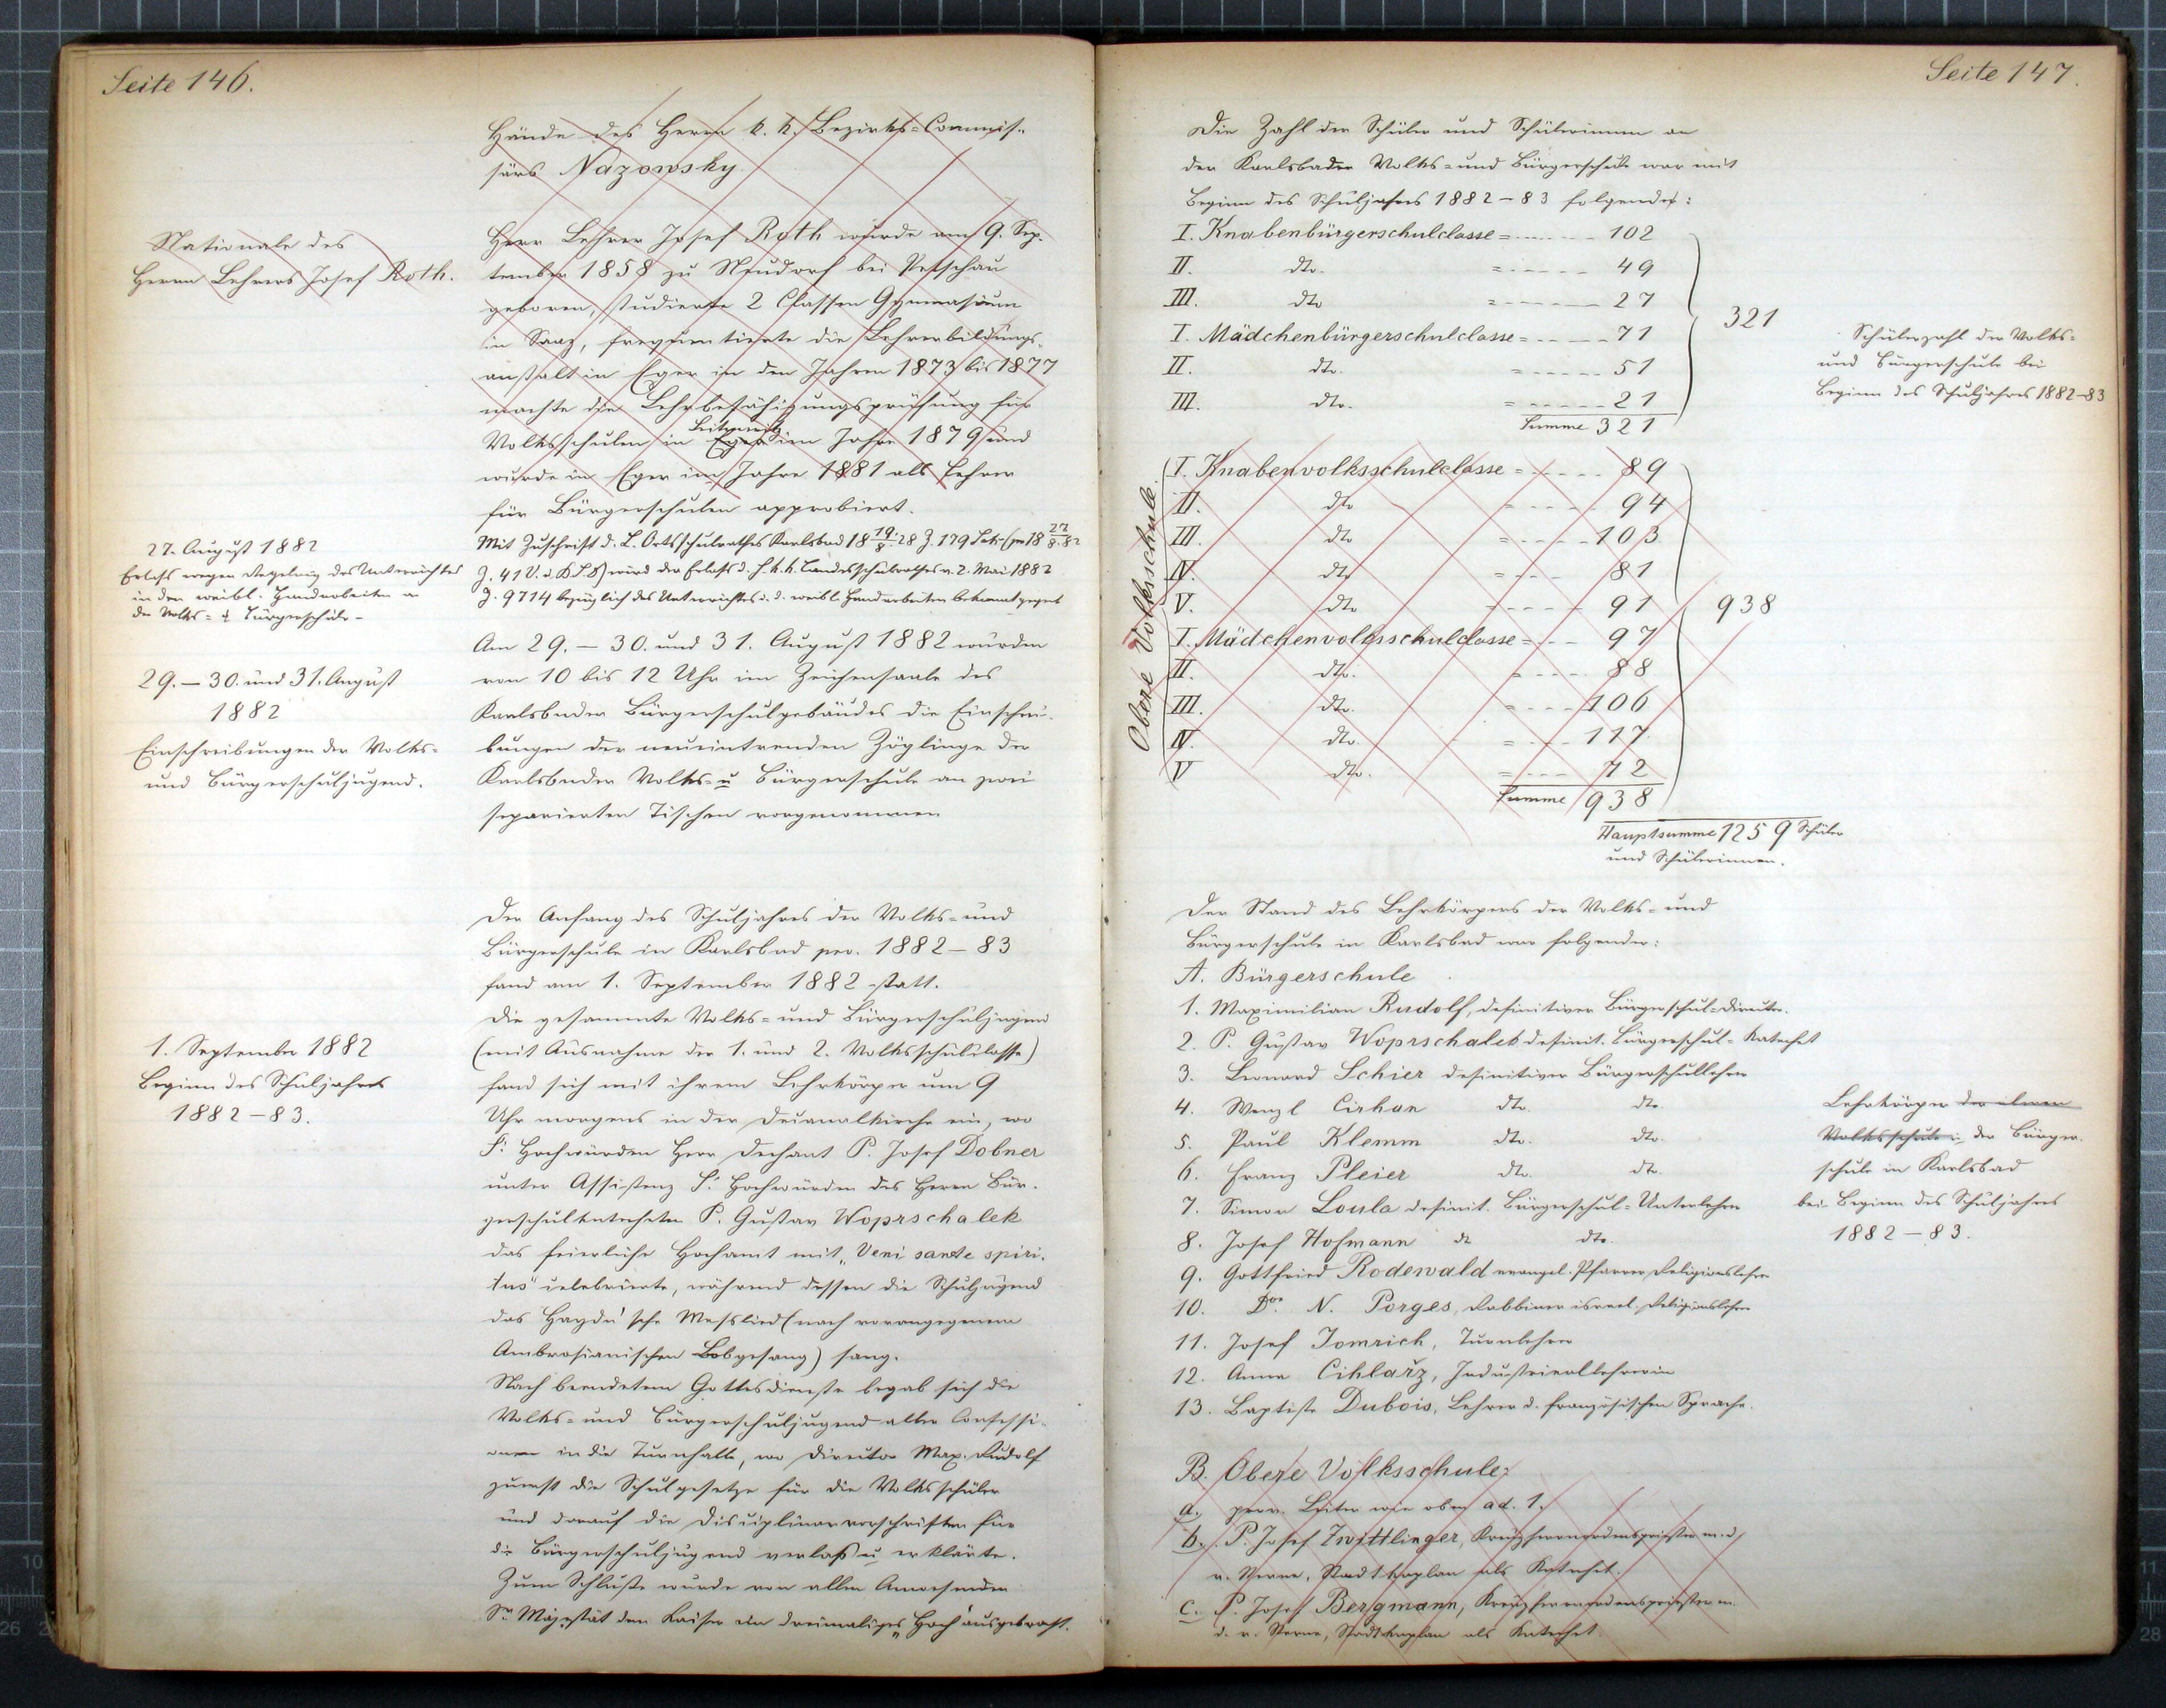 Seite 146.
Hände des Herrn k. k. Bezirks=Commis-
särs Nazowsky.
Nationale des
Herrn Lehrers Josef Roth.
Herr Lehrer Josef Roth wurde am 9. Sep-
tember 1858 zu Neudorf bei Petschau
geboren, studierte 2 Classen Gymnasium
in Saaz, frequentierte die Lehrerbildungs-
anstalt in Eger in den Jahren 1873 bis 1877
machte die Lehrbefähigungsprüfung für
Leitmeritz
Volksschulen in Eger im Jahre 1879 und
wurde in Eger im Jahre 1881 als Lehrer
für Bürgerschulen approbiert.
27. August 1882
Erlaß wegen Regelung des Unterrichtes
in den weibl. Handarbeiten an
der Volks= & Bürgerschule-
Mit Zuschrift d. L. Ortsschulrathes Karlsbad 18 19/8 28 Z. 179 (pr 18 27/8 82
Z. 41 V. u. B. S.) wird der Erlaß d. h. k. k. Landesschulrathes v. 2. Mai 1882
Z. 9714 bezüglich des Unterrichtes i. d. weibl. Handarbeiten bekannt gegeb
29. – 30. und 31. August
1882
Einschreibungen der Volks=
und Bürgerschuljugend.
Am 29. – 30. und 31. August 1882 wurden
von 10 bis 12 Uhr im Zeichensaale des
Karlsbader Bürgerschulgebäudes die Einschrei-
bungen der neueintrenden Zöglinge der
Karlsbader Volks= u Bürgerschule an zwei
separierten Tischen vorgenommen
1. September 1882
Beginn des Schuljahres
1882 – 83.
Der Anfang des Schuljahres der Volks= und
Bürgerschule in Karlsbad pro. 1882 – 83
fand am 1. September 1882 statt.
Die gesammte Volks= und Bürgerschuljugend
(mit Ausnahme der 1. und 2. Volksschulclasse)
fand sich mit ihrem Lehrkörper um 9
Uhr morgens in der Decanalkirche ein, wo
Sr Hochwürden Herr Dechant P. Josef Dobner
unter Assistenz Sr Hochwürden des Herrn Bür-
gerschulkatecheten P. Gustav Woprschalek
das feierliche Hochamt mit „Veni sante spiri-
tus" celebrierte, während dessen die Schuljugend
das Haydn'sche Messlied (nach vorangegenem
Ambrosianischen Lobgesang) sang.
Nach beendetem Gottesdienste begab sich die
Volks= und Bürgerschuljugend aller Confessi-
onen in die Turnhalle, wo Director Max. Rudolf
zuerst die Schulgesetze für die Volksschüler
und darauf die Disciplinarvorschriften für
die Bürgerschuljugend verlas u erklärte.
Zum Schluße wurde von allen Anwesenden
Sr Majestät dem Kaiser ein dreimaliges „Hoch" ausgebracht.
Seite 147.
Die Zahl der Schüler und Schülerinnen an
der Karlsbader Volks= und Bürgerschule war mit
Beginn des Schuljahres 1882 – 83 folgende:
I. Knabenbürgerschulclasse = 102
II. dto. = 49
III. dto = 27
I. Mädchenbürgerschulclasse = 71
II. dto. = 51
III. dto. = 21
Summe 321
321
Schülerzahl der Volks=
und Bürgerschule bei
Beginn des Schuljahres 1882–83
Obere Volksschule.
I. Knabenvolksschulclasse = 89
II. dto = 94
III. dto = 103
IV. dto = 81
V. dto = 91
I. Mädchenvolksschulclasse = 97
II. dto. = 88
III. dto. = 106
IV. dto. = 117
V dto. = 72
Summe 938
938
Hauptsumme 1259 Schüler
und Schülerinnen.
Der Stand des Lehrkörpers der Volks= und
Bürgerschule in Karlsbad war folgender:
A. Bürgerschule
1. Maximilian Rudolf, definitiver Bürgerschul=Director.
2. P. Gustav Woprschalek definit. Bürgerschul=Katechet
3. Leonard Schier definitiver Bürgerschullehrer
4. Wenzl Cirhan dto. dto
5. Paul Klemm dto. dto.
6. Franz Pleier dto. dto.
7. Simon Loula definit. Bürgerschul=Unterlehrer
8. Josef Hofmann dt dto.
9. Gottfried Rodewald evangel. Pfarrer, Religionslehrer
10. Dor. N. Porges, Rabbiner israel. Religionslehrer
11. Josef Tomrich, Turnlehrer
12. Anna Cihlařz, Industriallehrerin
13. Baptiste Dubois, Lehrer d. französischen Sprache.
Lehrkörper der oberen
Volksschule u der Bürger-
schule in Karlsbad
bei Beginn des Schuljahres
1882 – 83.
B. Obere Volksschule:
a. prov. Leiter wie oben ad. 1.
b. P. Josef Zwittlinger, Kreuzherrnordenspriester m. d.
r. Sterne, Stadtkaplan als Katechet.
c. P. Josef Bergmann, Kreuzherrnordenspriester m.
d. r. Sterne, Stadtkaplan als Katechet.